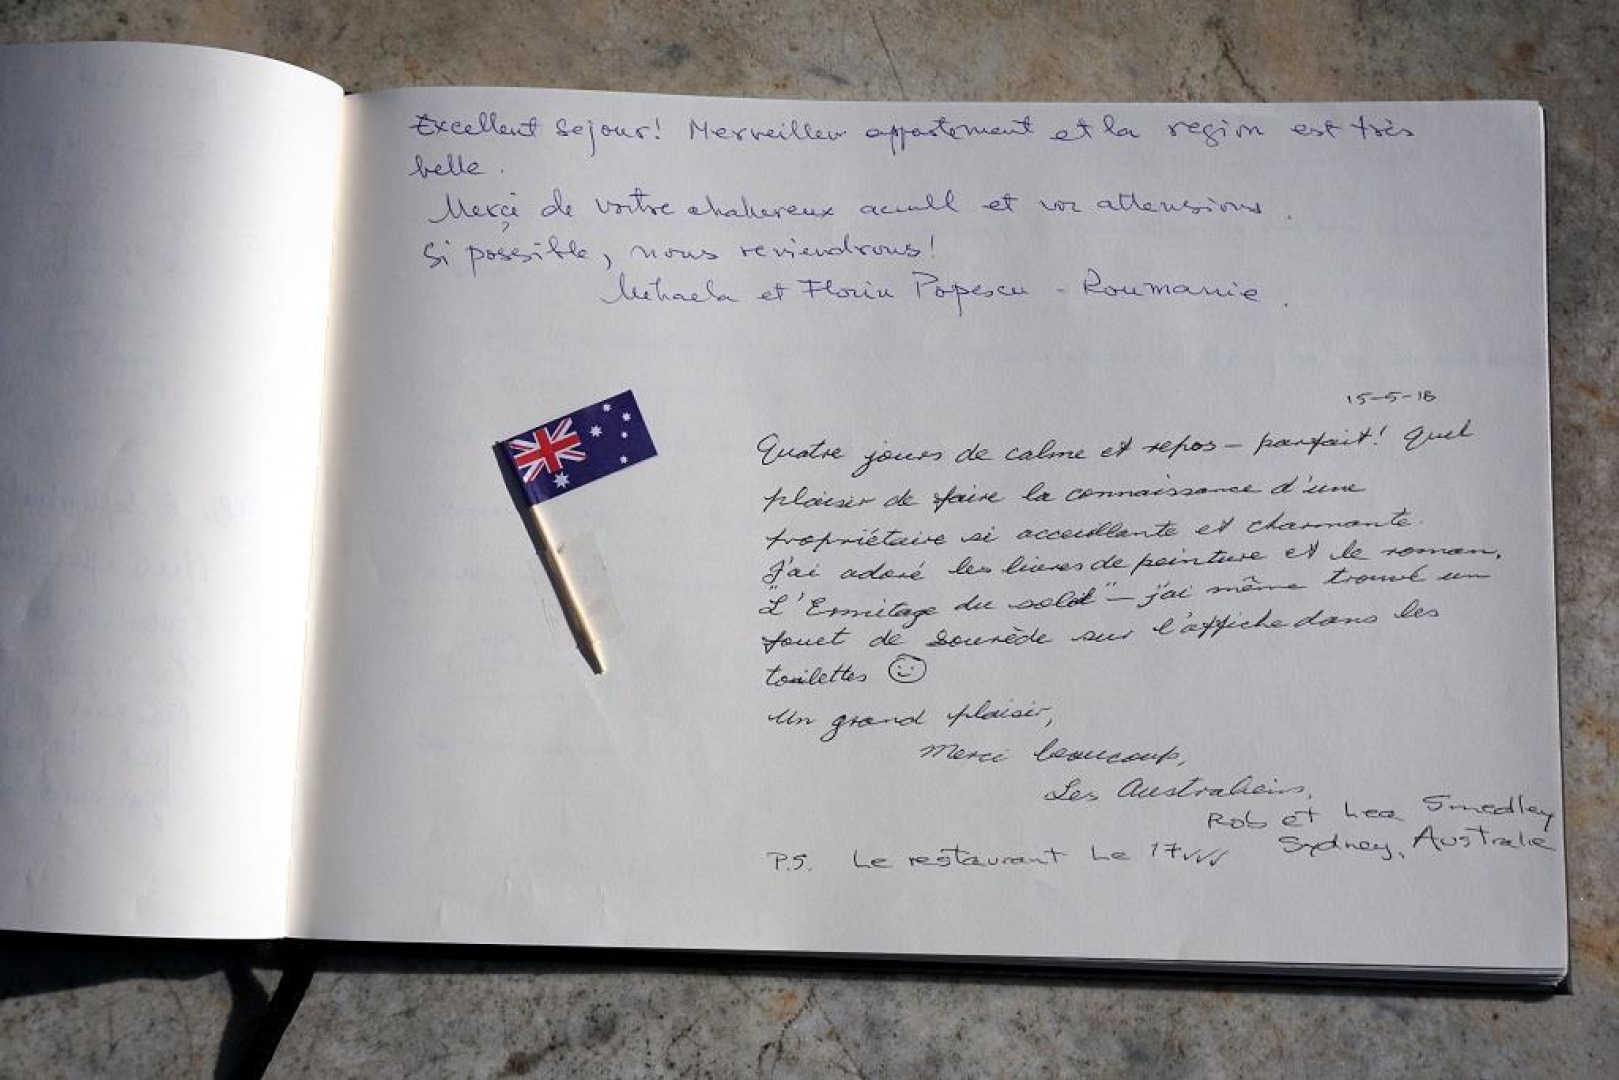 Excellent sejour! Merveilleux appartement et la region est très
belle.
Merçi de votre chalereux acuell et vos attensions.
Si possible, nous reviendrons!
Mihaela et Florin Popescu - Roumanie.
15-5-18
Quatre jours de calme et repos - parfait! Quel
plaisir de faire la connaissance d'une
propriétaire si accueillante et charmante.
J'ai adoré les livres de peinture et le roman,
"L'Ermitage du soleil" - j'ai même trouvé un
jouet de Sourède sur l'affiche dans les
toilettes ☺
Un grand plaisir,
Merci beaucoup,
Les Australiens,
Rob et Lea Smedley
Sydney, Australie
P.S. Le restaurant Le 17 ✓✓✓